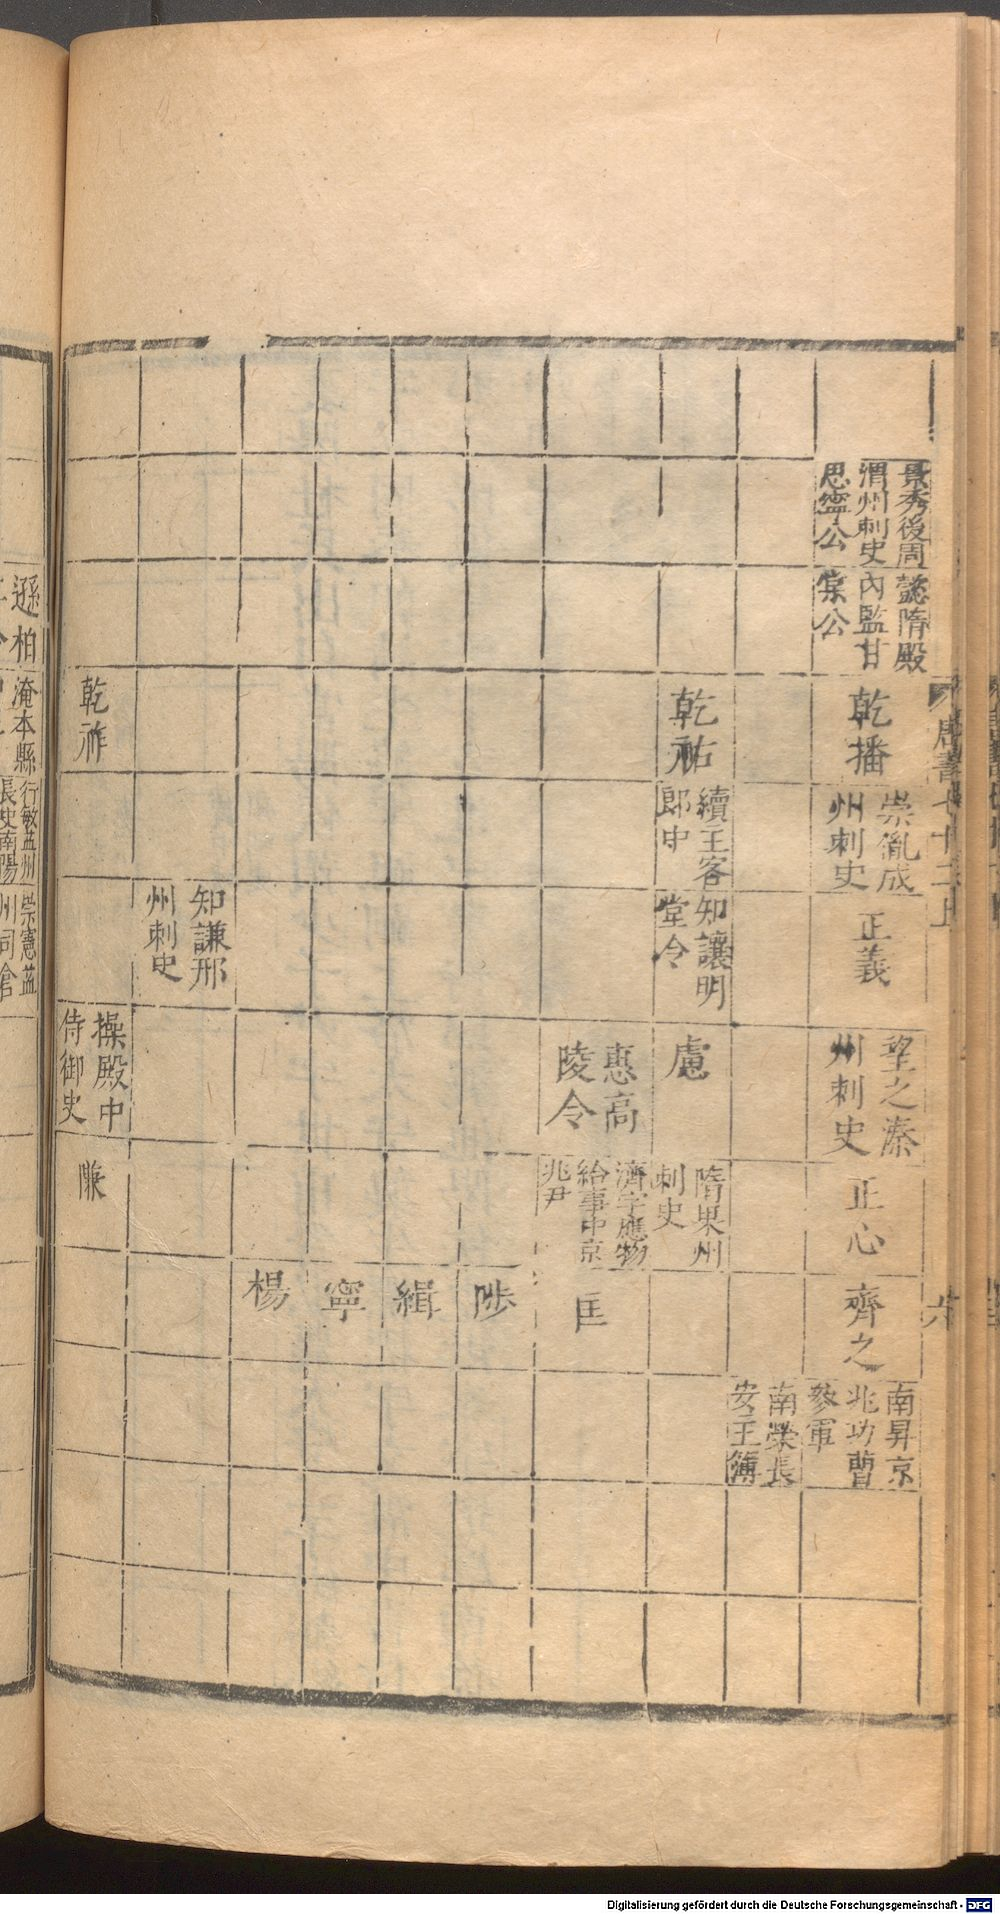 景秀後周
渭州刺史
思寧公
懿隋殿
內監甘
棠公
乾播
崇胤成
州刺史
正義
望之漆
州刺史
正心
齊之
南昇京
兆功曹
參軍
南榮長
安主簿
乾祐
續王客
郎中
知讓明
堂令
慮
隋果州
刺史
惠高
陵令
濟字應物
給事中京
兆尹
匡
陟
緝
寧
楊
知謙邢
州刺史
乾祚
操殿中
侍御史
唐書七十二上
六
遜柏
淹本縣
行敏益州
長史南陽
崇憲益
州司倉
Digitalisierung gefördert durch die Deutsche Forschungsgemeinschaft - DFG